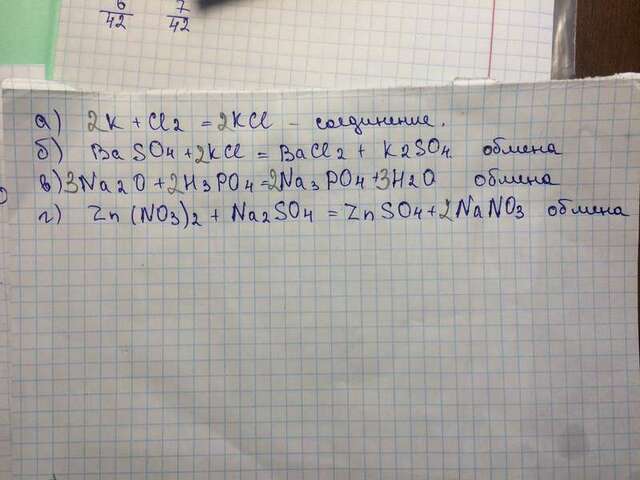 а) 2K + Cl2 = 2KCl - соединение.
б) BaSO4 + 2KCl = BaCl2 + K2SO4 обмена
в) 3Na2O + 2H3PO4 = 2Na3PO4 + 3H2O обмена
г) Zn(NO3)2 + Na2SO4 = ZnSO4 + 2NaNO3 обмена
6/42 7/42